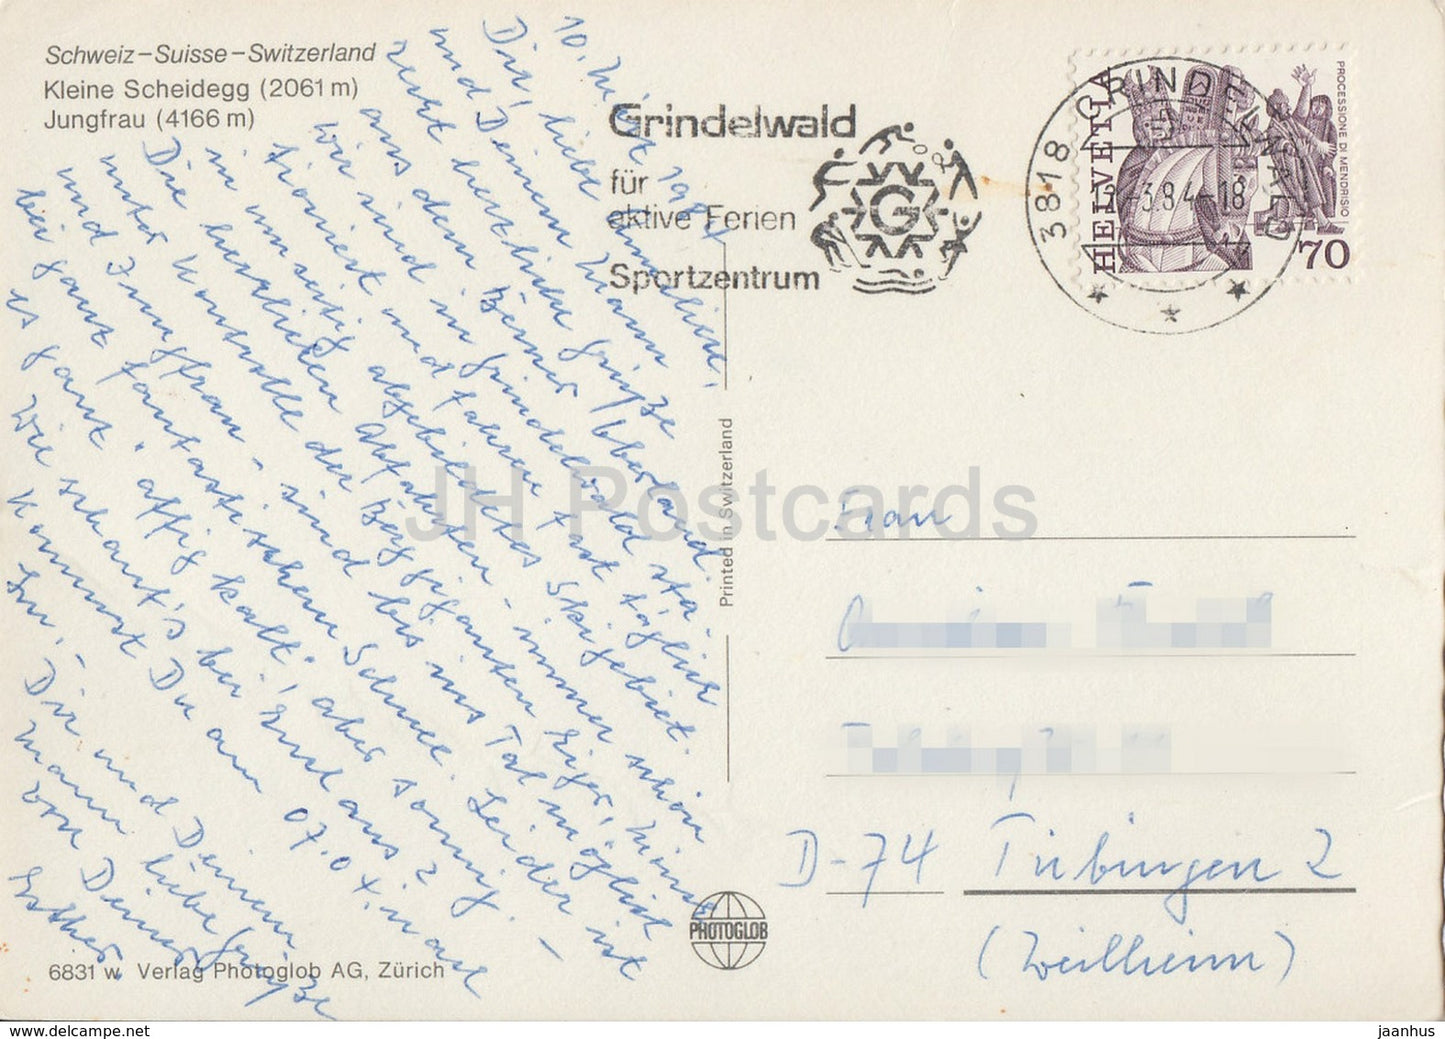 Schweiz–Suisse–Switzerland
Kleine Scheidegg (2061 m)
Jungfrau (4166 m)
10. März 1984
Dir, liebe Anneliese,
und Deinem Mann
recht herzliche Grüße
aus dem Berner Oberland.
Wir sind in Grindelwald sta-
tioniert und fahren fast täglich
in umseitig abgebildetes Skigebiet.
Die herrlichen Abfahrten - immer schön
unter Kontrolle der Berggiganten Eiger, Mönch
und Jungfrau - sind bis ins Tal möglich
bei ganz fantastischem Schnee. Leider ist
es ganz "affig kalt", aber sonnig. -
Wie schaut's bei Euch aus?
Kommst Du am 07.04. nach
Dir und Deinem
Mann liebe Grüße
von Deiner
Esther
6831 w Verlag Photoglob AG, Zürich
Printed in Switzerland
PHOTOGLOB
Grindelwald
für
aktive Ferien
Sportzentrum
G
3818 GRINDELWALD
-3.84-18
HELVETIA
PROCESSIONE DI MENDRISIO
70
Frau
D-74 Tübingen 2
(Weilheim)
JH Postcards
jaanhus | www.delcampe.net